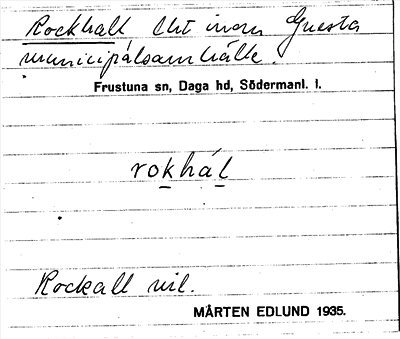 Rockhall Lht inom Gnesta
municipalsamhälle.
Frustuna sn, Daga hd, Södermanl. l.
rokhál
Rockall vil.
MÅRTEN EDLUND 1935.